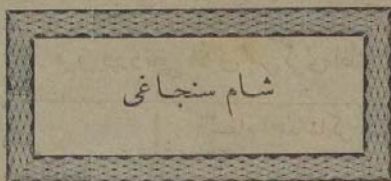 شام سنجاغی